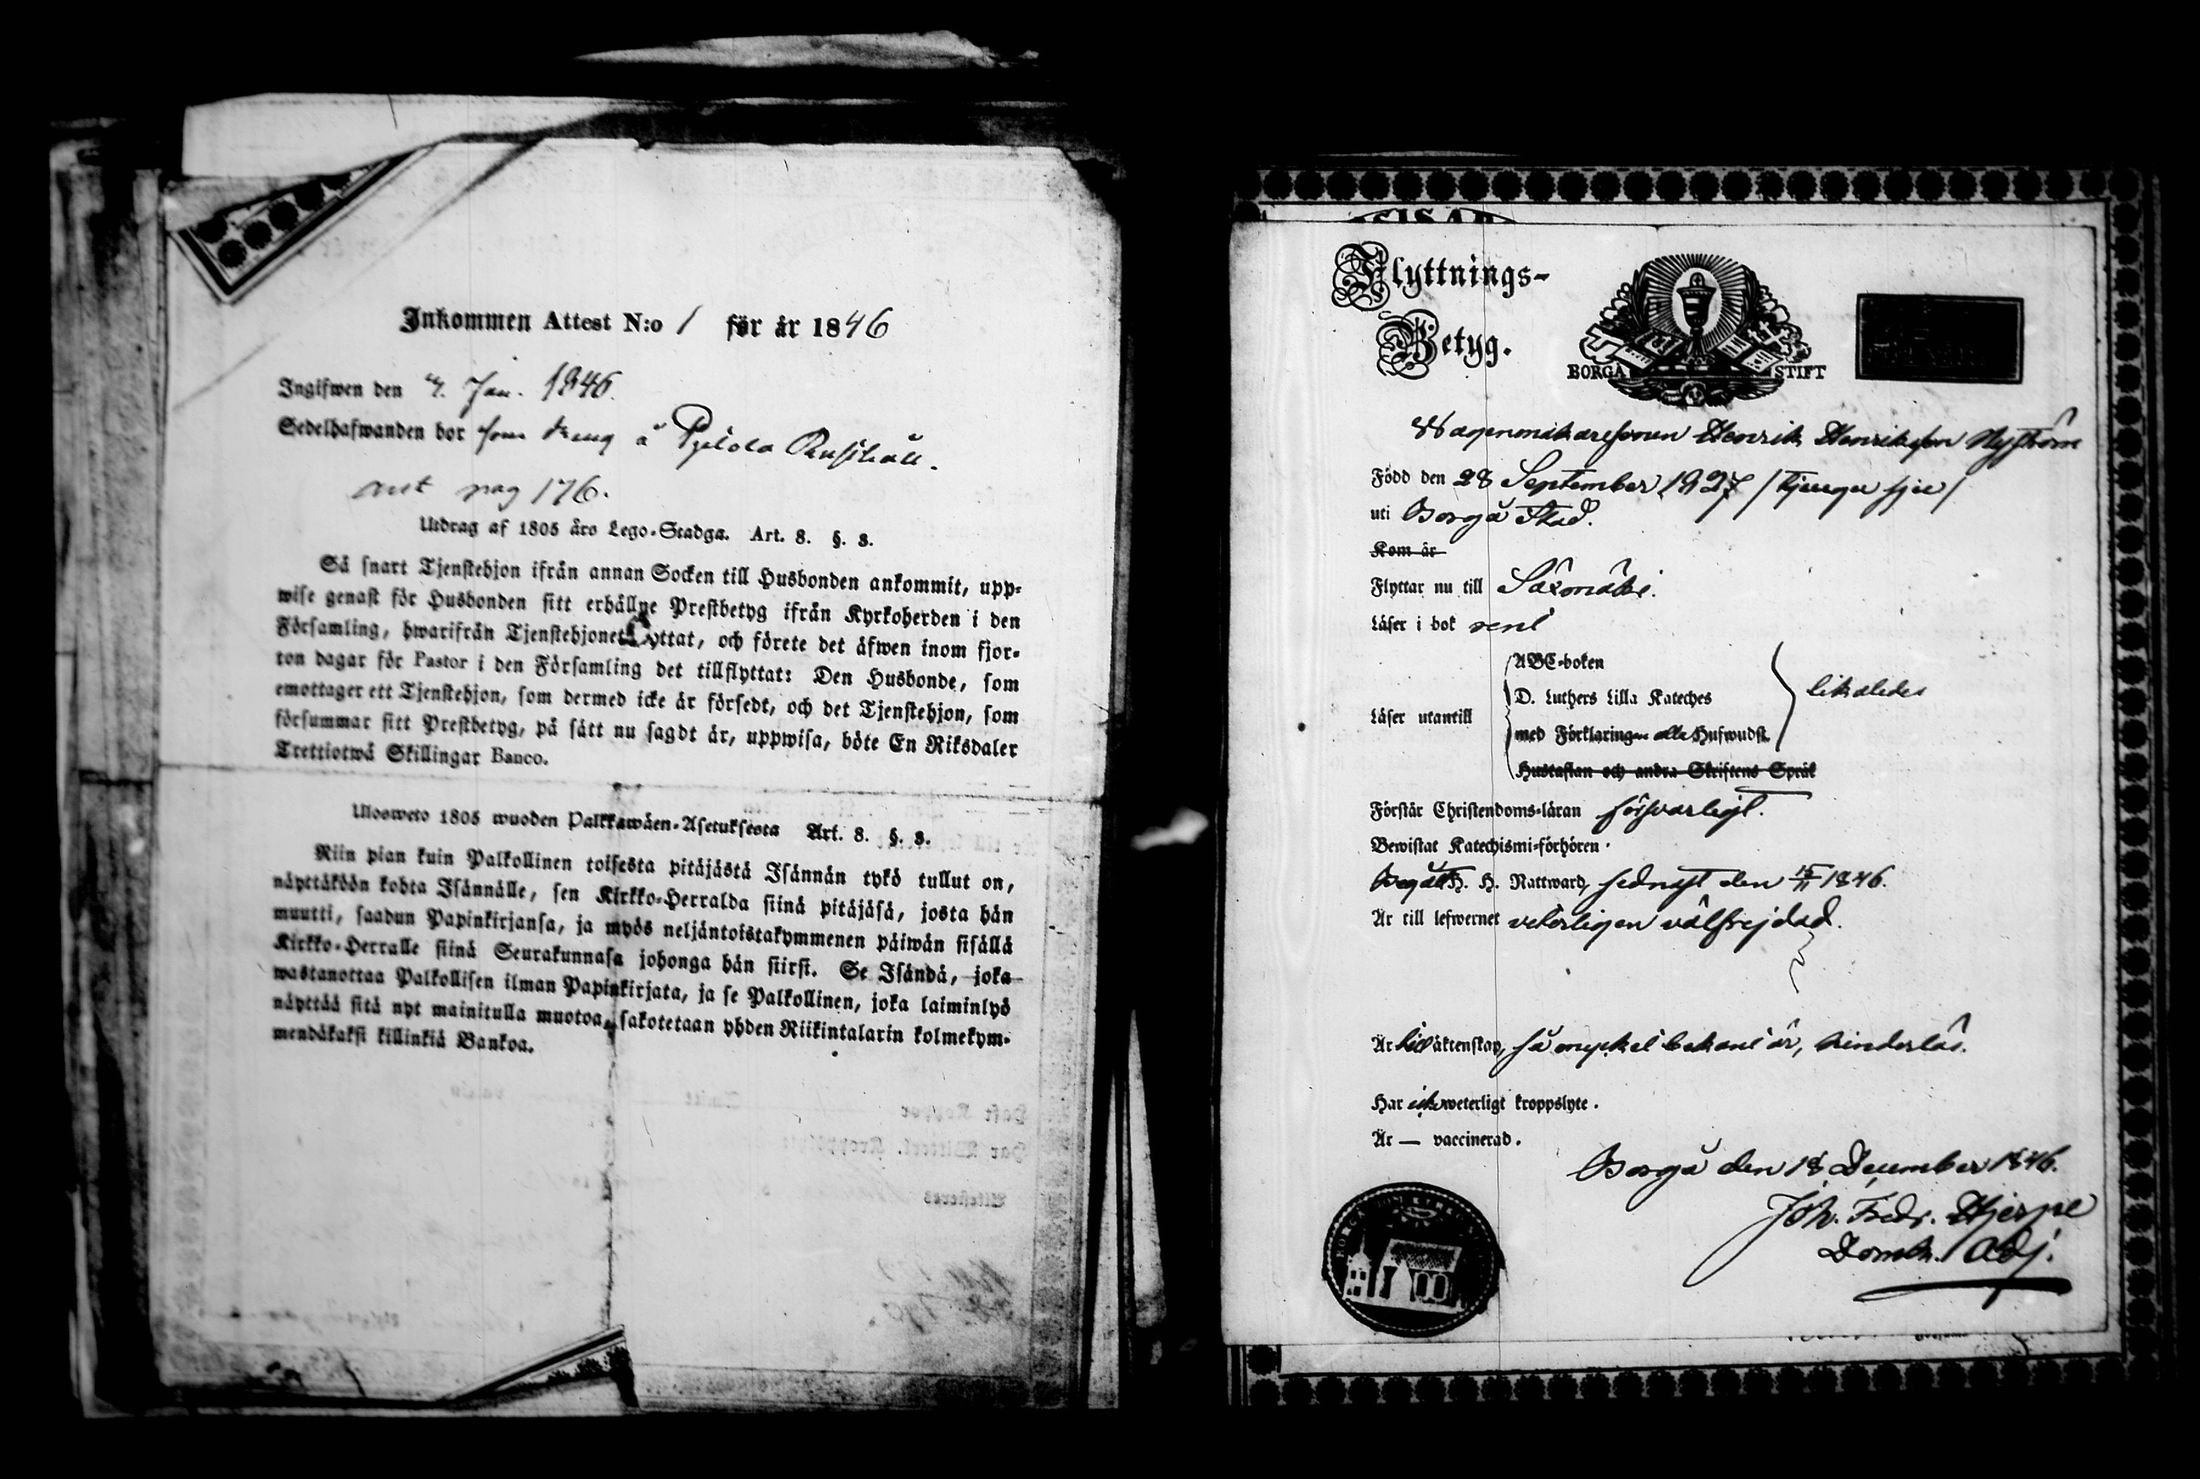 Inkommen Attest N:o 1 för år 1846
Ingifwen den 4. Jan. 1846.
Sedelhafwanden bor som dreng å Rusthåll.
ant pag 176.
Utdrag af 1805 års Lego-Stadga. Art. 8. §. 3.
Så snart Tjenstehjon ifrån annan Socken till Husbonden ankommit, upp-
wise genast för Husbonden sitt erhållne Prestbetyg ifrån Kyrkoherden i den
Församling, hwarifrån Tjenstehjonet flyttat, och förete det äfwen inom fjor-
ton dagar för Pastor i den Församling det tillflyttat: Den Husbonde, som
emottager ett Tjenstehjon, som dermed icke är försedt, och det Tjenstehjon, som
försummar sitt Prestbetyg, på sätt nu sagdt är, uppwisa, böte En Riksdaler
Trettiotwå Skillingar Banco.
Ulosweto 1805 wuoden Palkkawäen-Asetuksesta Art. 8. §. 3.
Niin pian kuin Palkollinen toisesta pitäjästä Isännän tykö tullut on,
näyttäköön kohta Isännälle, sen Kirkko-Herralda siinä pitäjäsä, josta hän
muutti, saadun Papinkirjansa, ja myös neljäntoistakymmenen päiwän sisällä
Kirkko-Herralle siinä Seurakunnasa johonga hän siirsi. Se Isändä, joka
wastanottaa Palkollisen ilman Papinkirjata, ja se Palkollinen, joka laiminlyö
näyttää sitä nyt mainitulla muotoa, sakotetaan yhden Riikintalarin kolmekym-
mendäkaksi killinkiä Bankoa.
Flyttnings-
Betyg.
BORGÅ STIFT
Wagenmakaresonen Henrik Henriksson Nyström
Född den 28 September 1827 / tjugu sju /
uti Borgå Stad.
Kom år
Flyttar nu till Säxmäki.
Läser i bok rent
ABC-boken
D. Luthers Lilla Kateches
likaledes
Läser utantill
med Förklaringen alla Hufwudst.
Hustaflan och andra Skriftens Språk
Förstår Christendoms-läran försvarligt.
Bewistat Katechismi-förhören.
Begått H. H. Nattward, sednast den 15/11 1846.
Är till lefwernet veterligen välfrejdad.
Är till äktenskap, så mycket bekant är, hinderlös.
Har icke weterligt kroppslyte.
Är — vaccinerad.
Borgå den 18 December 1846.
Joh. Fredr. Hjerpe
Domk. Adj.